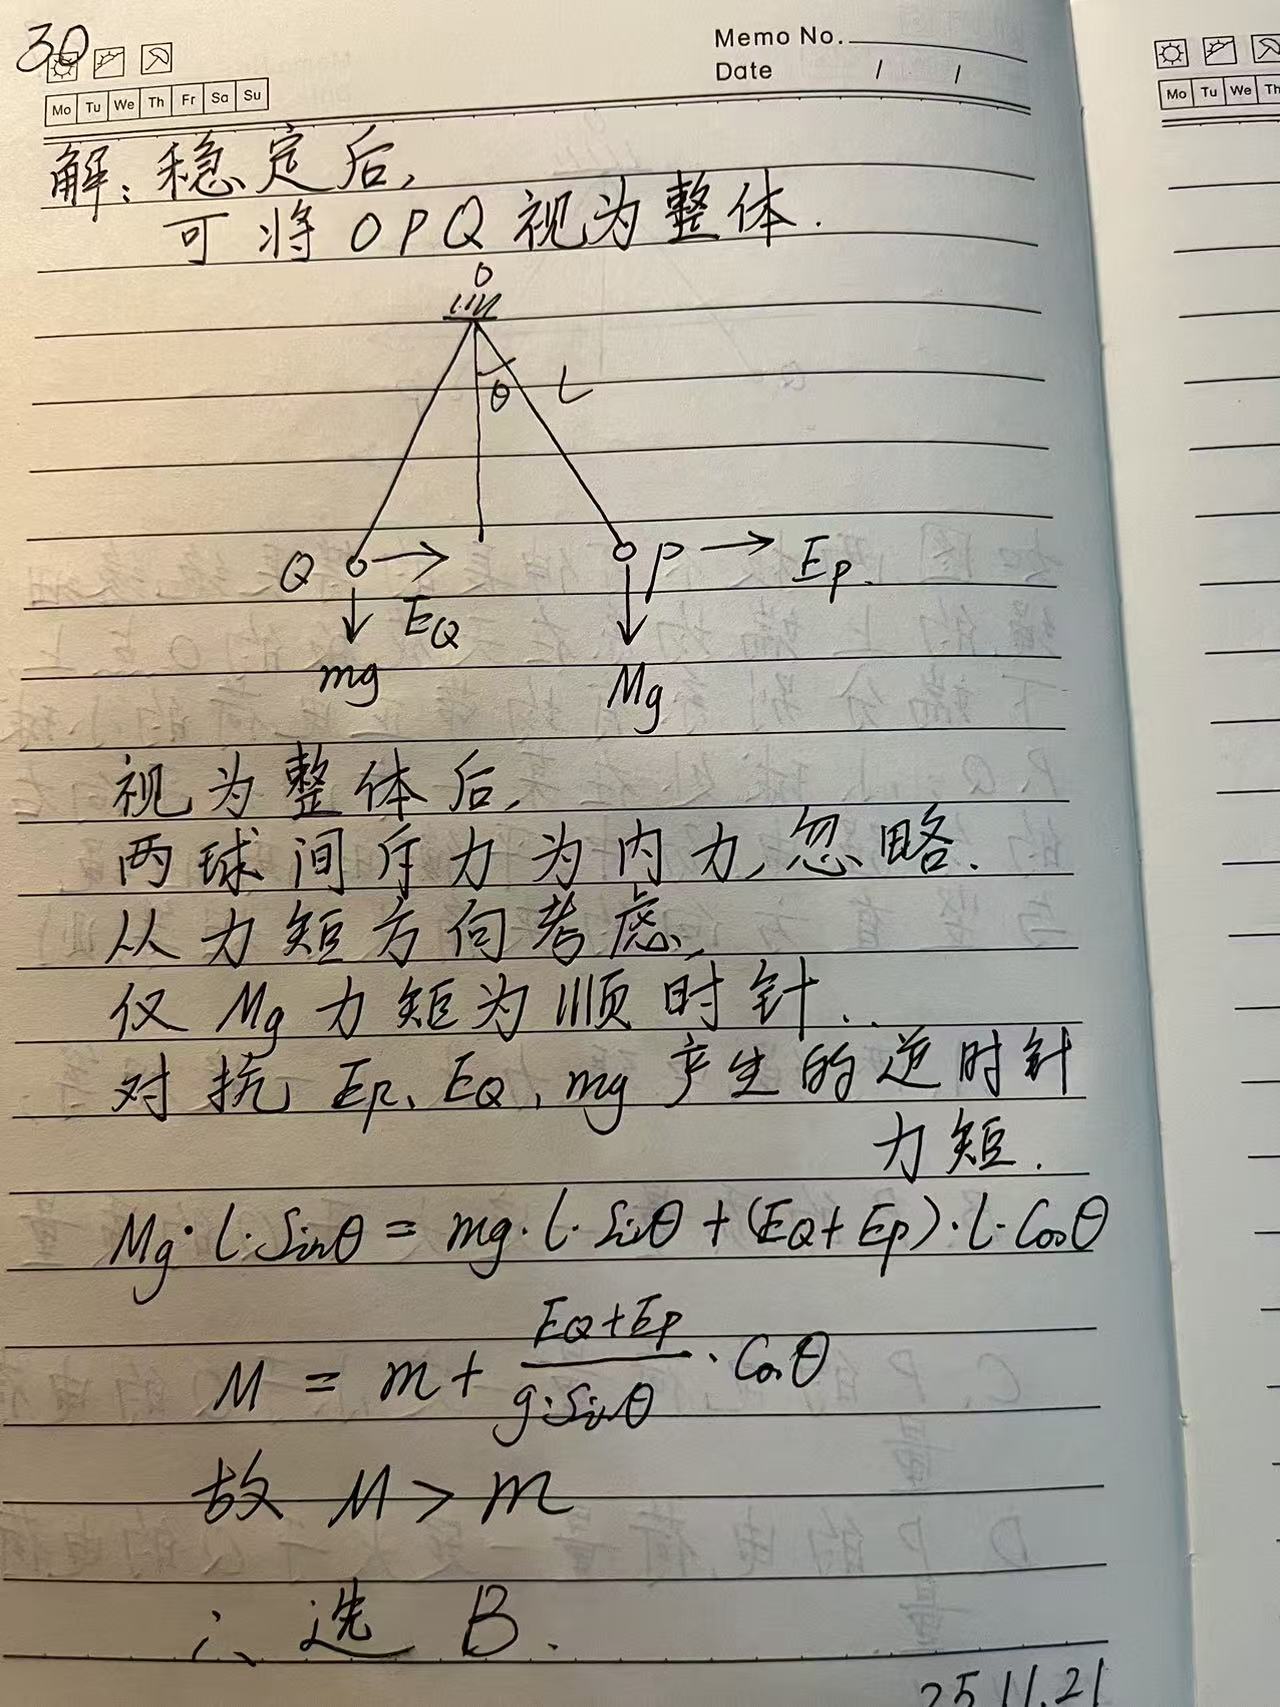 30
Memo No.
Date / /
Mo Tu We Th Fr Sa Su
Mo Tu We Th
解:稳定后,
可将OPQ视为整体.
O
θ L
Q P Ep.
EQ
mg Mg
视为整体后,
两球间斥力为内力,忽略.
从力短方向考虑,
仅Mg力矩为顺时针.
对抗Ep、EQ、mg产生的逆时针
力短.
Mg·l·Sinθ = mg·l·Sinθ + (EQ+Ep)·l·Cosθ
M = m + (EQ+Ep)/(g·Sinθ) · Cosθ
故 M > m
∴选 B.
25.11.21